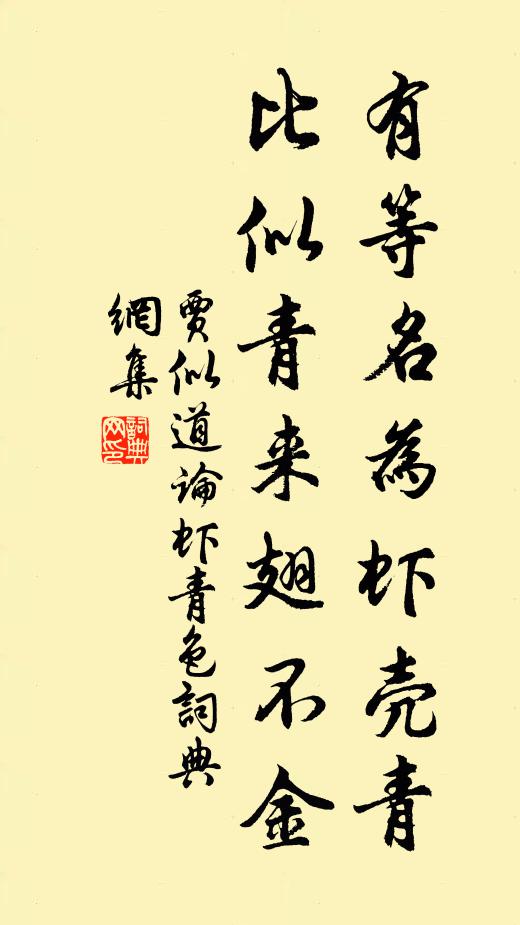 有等名為虾壳青
比似青来翅不金
賈似道論虾青色詞典
網集
詞典
网印